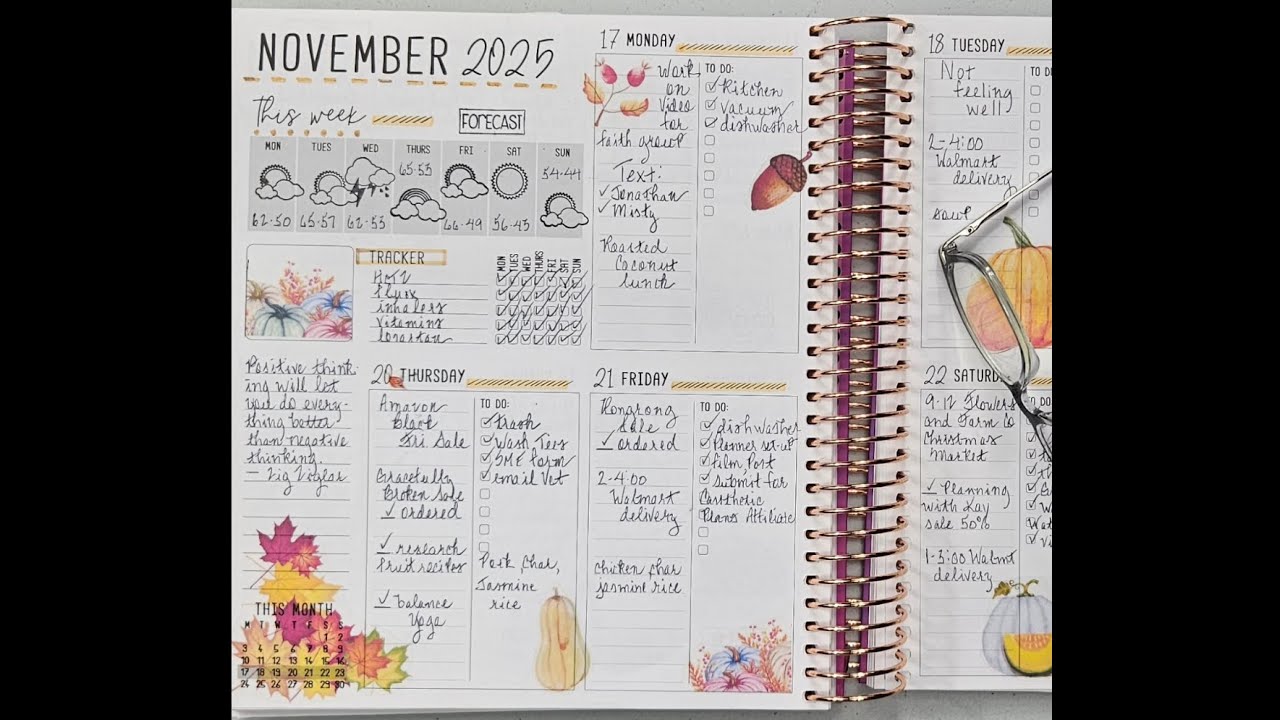 NOVEMBER 2025
This week
FORECAST
MON TUES WED THURS FRI SAT SUN
62-50 65-57 62-53 65-53 66-49 56-43 54-44
TRACKER
MON TUES WED THURS FRI SAT SUN
Flux
inhalers
vitamins
Positive think-
ing will let
you do every-
thing better
than negative
thinking.
— Zig Ziglar
THIS MONTH
M T W T F S S
1 2
3 4 5 6 7 8 9
10 11 12 13 14 15 16
17 18 19 20 21 22 23
24 25 26 27 28 29 30
17 MONDAY
Work
on
Video
for
faith group
Text:
✓ Jonathan
✓ Misty
Roasted
Coconut
lunch
TO DO:
Kitchen
vacuum
dishwasher
20 THURSDAY
Amazon
black
Fri Sale
Gracefully
Broken sale
✓ ordered
✓ research
fruit recipes
✓ balance
Yoga
TO DO:
trash
Wash Tees
SME form
email Vet
Pork, Char,
Jasmine
rice
21 FRIDAY
Rongrong
Sale
✓ ordered
2-4:00
Walmart
delivery
chicken, char
jasmine rice
TO DO:
dishwasher
Planner set-up
film Post
Submit for
Planes Affiliate
18 TUESDAY
Not
feeling
well
2-4:00
Walmart
delivery
TO D
22 SATURDA
9-12 Flowers
and Farm Co
Christmas
Market
✓ Planning
with Kay
sale 50%
1-3:00 Walmt
delivery